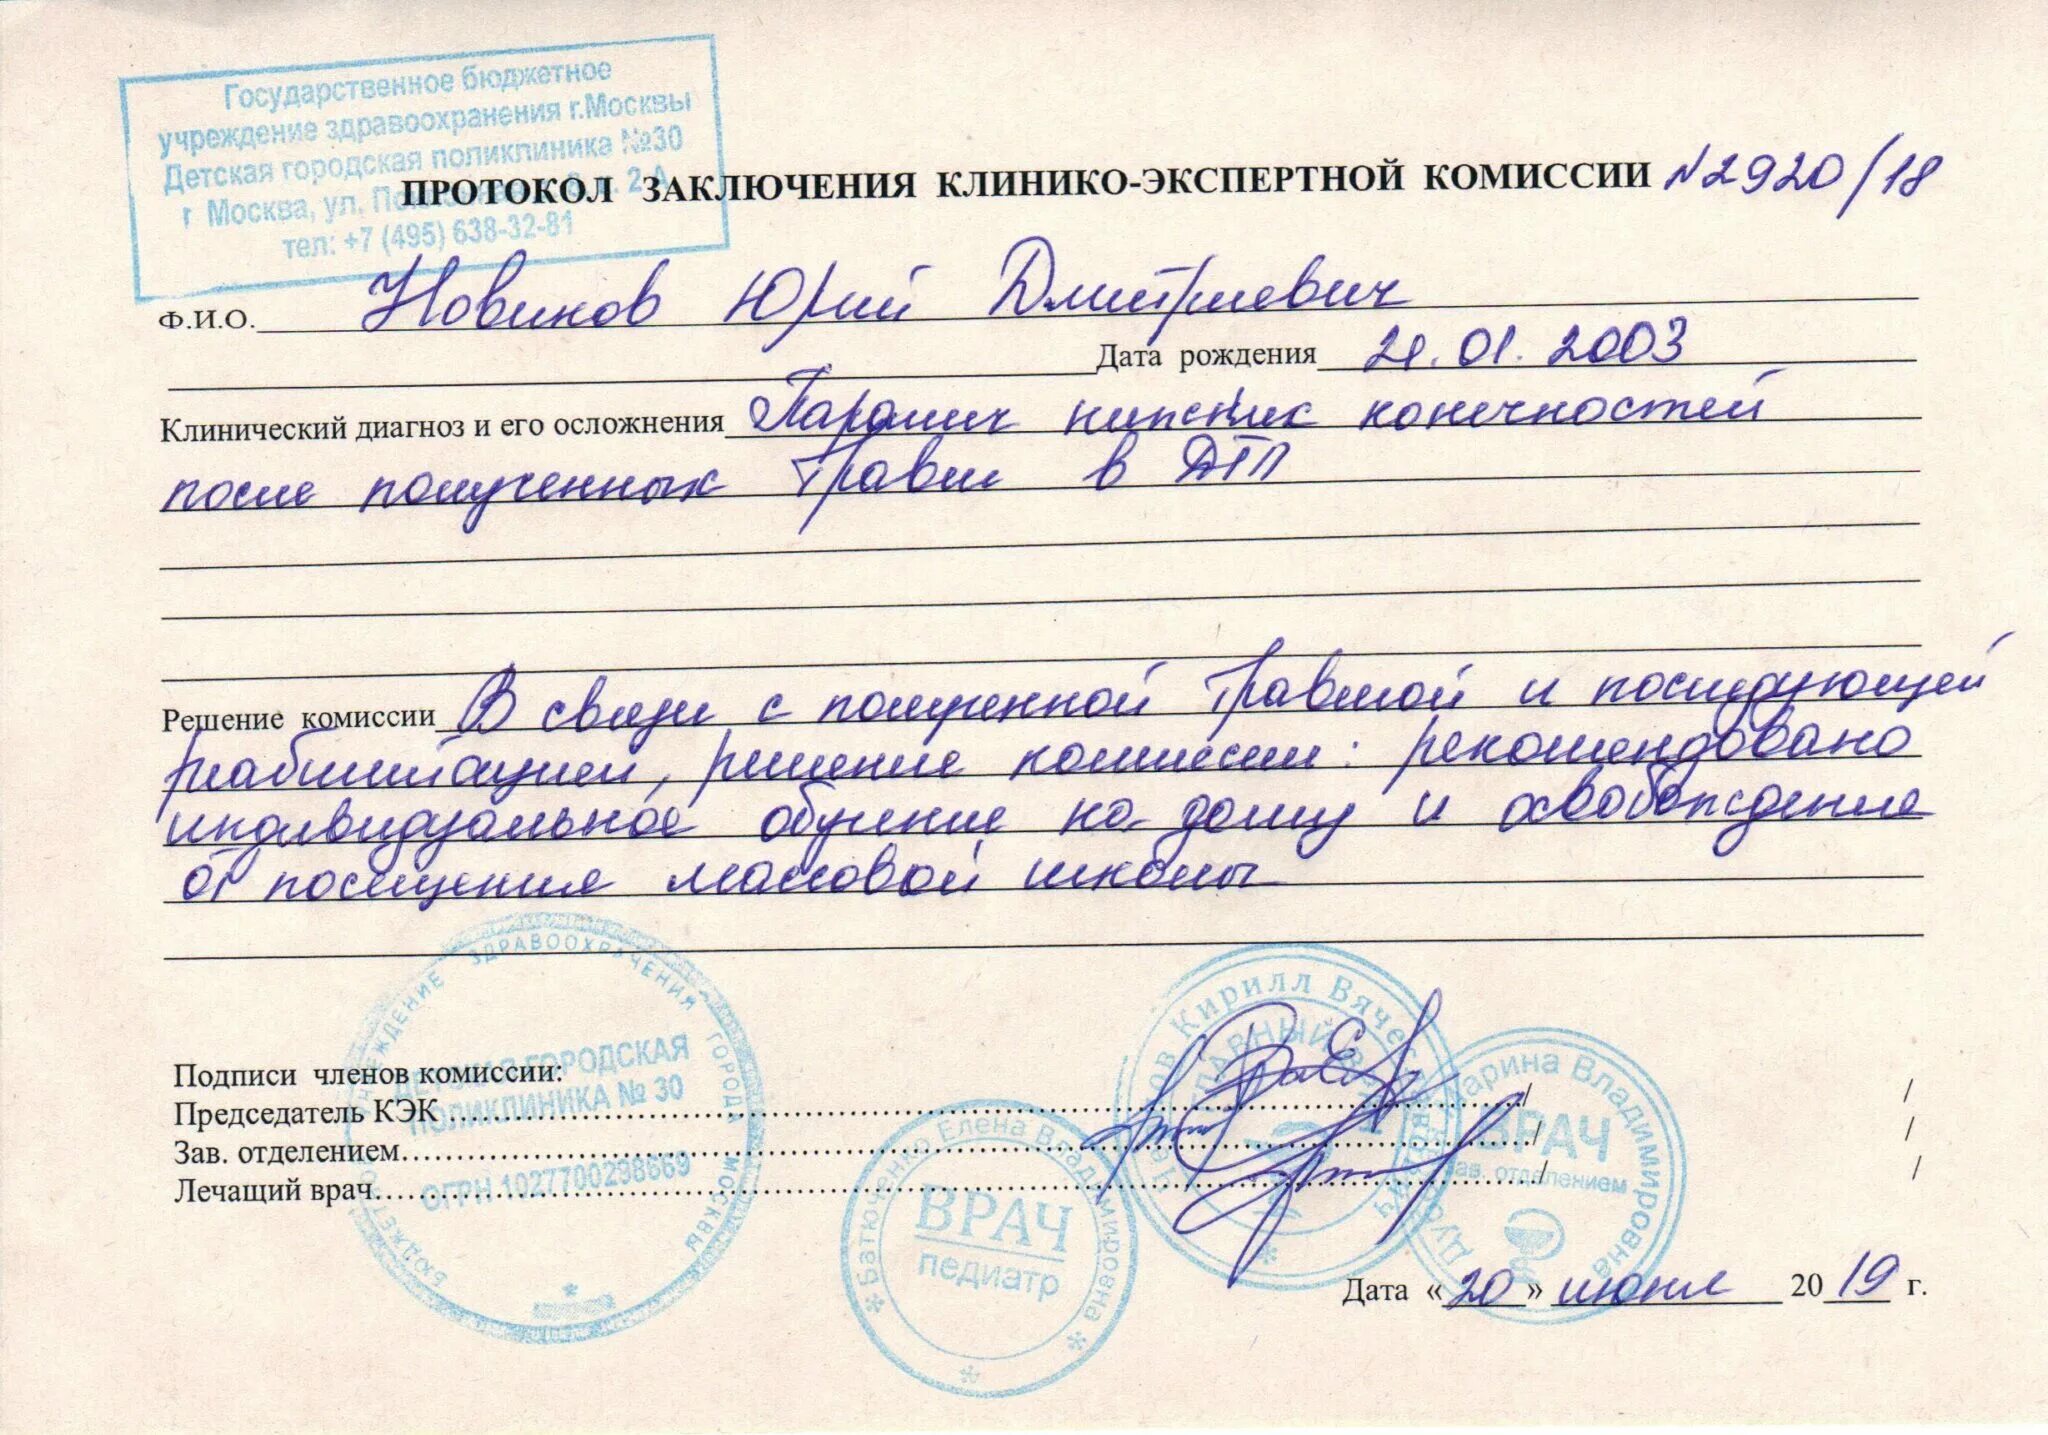 Государственное бюджетное
учреждение здравоохранения г.Москвы
Детская городская поликлиника №30
г Москва, ул. 2 А
тел: +7 (495) 638-32-81
ПРОТОКОЛ ЗАКЛЮЧЕНИЯ КЛИНИКО-ЭКСПЕРТНОЙ КОМИССИИ №2920/18
Ф.И.О. Новиков Юрий Дмитриевич
Дата рождения 21.01.2003
Клинический диагноз и его осложнения Паралич нижних конечностей
после полученных травм в ДТП
Решение комиссии В связи с полученной травмой и последующей
реабилитацией, решение комиссии: рекомендовано
индивидуальное обучение на дому и освобождение
от посещения массовой школы
УЧРЕЖДЕНИЕ ЗДРАВООХРАНЕНИЯ ГОРОДА МОСКВЫ
ДЕТСКАЯ ГОРОДСКАЯ
ПОЛИКЛИНИКА № 30
ОГРН 1027700298669
Подписи членов комиссии:
Председатель КЭК / /
Зав. отделением / /
Лечащий врач / /
Кирилл Вячеславович
ГЛАВНЫЙ ВРАЧ
Марина Владимировна
ВРАЧ
зав. отделением
Батюченко Елена Владимировна
ВРАЧ
педиатр
Дата «20» июня 2019 г.